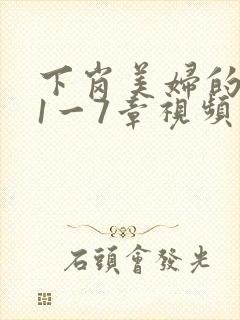 下岗美婦的
1一7章視頻
石頭會發光